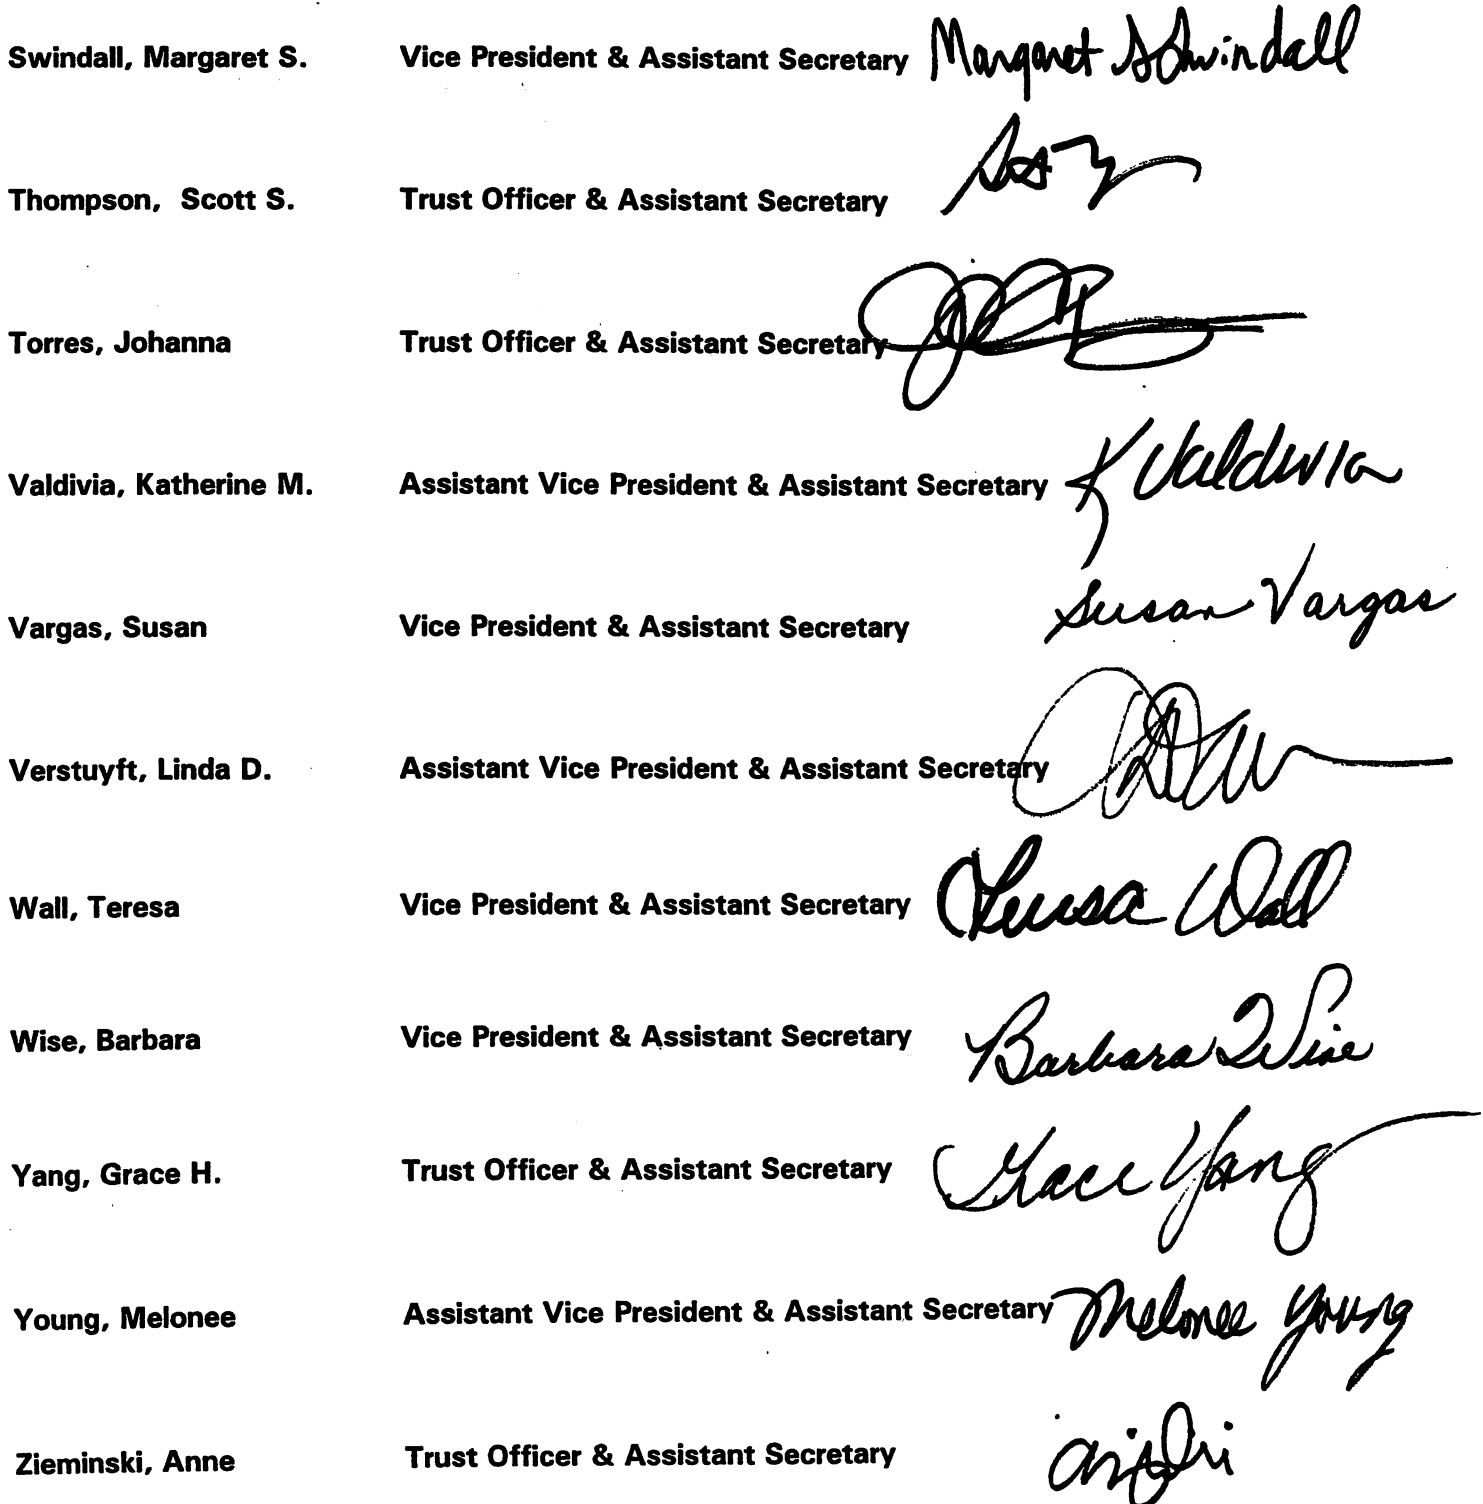 Swindall, Margaret S. Vice President & Assistant Secretary Margaret S Swindall
Thompson, Scott S. Trust Officer & Assistant Secretary
Torres, Johanna Trust Officer & Assistant Secretary
Valdivia, Katherine M. Assistant Vice President & Assistant Secretary K Valdivia
Vargas, Susan Vice President & Assistant Secretary Susan Vargas
Verstuyft, Linda D. Assistant Vice President & Assistant Secretary
Wall, Teresa Vice President & Assistant Secretary Teresa Wall
Wise, Barbara Vice President & Assistant Secretary Barbara Wise
Yang, Grace H. Trust Officer & Assistant Secretary Grace Yang
Young, Melonee Assistant Vice President & Assistant Secretary Melonee Young
Zieminski, Anne Trust Officer & Assistant Secretary